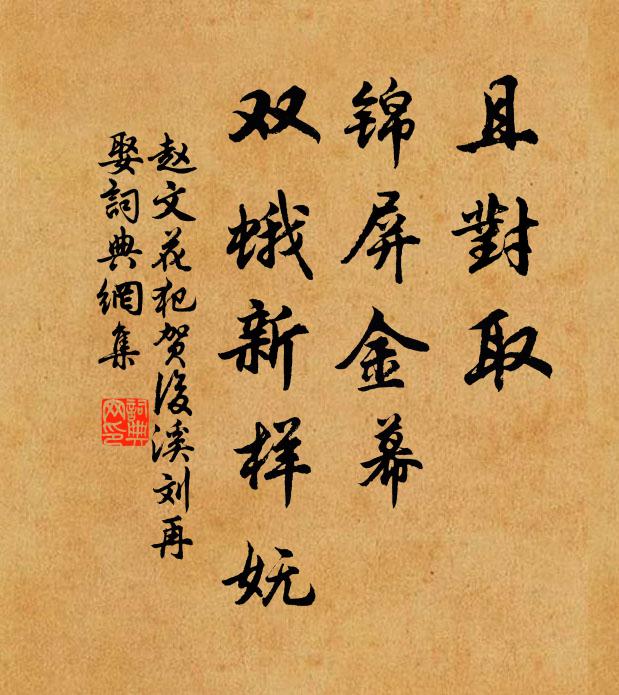 且對取
锦屏金幕
双蛾新样妩
赵文花犯贺後溪刘再
娶詞典網集
詞典網印